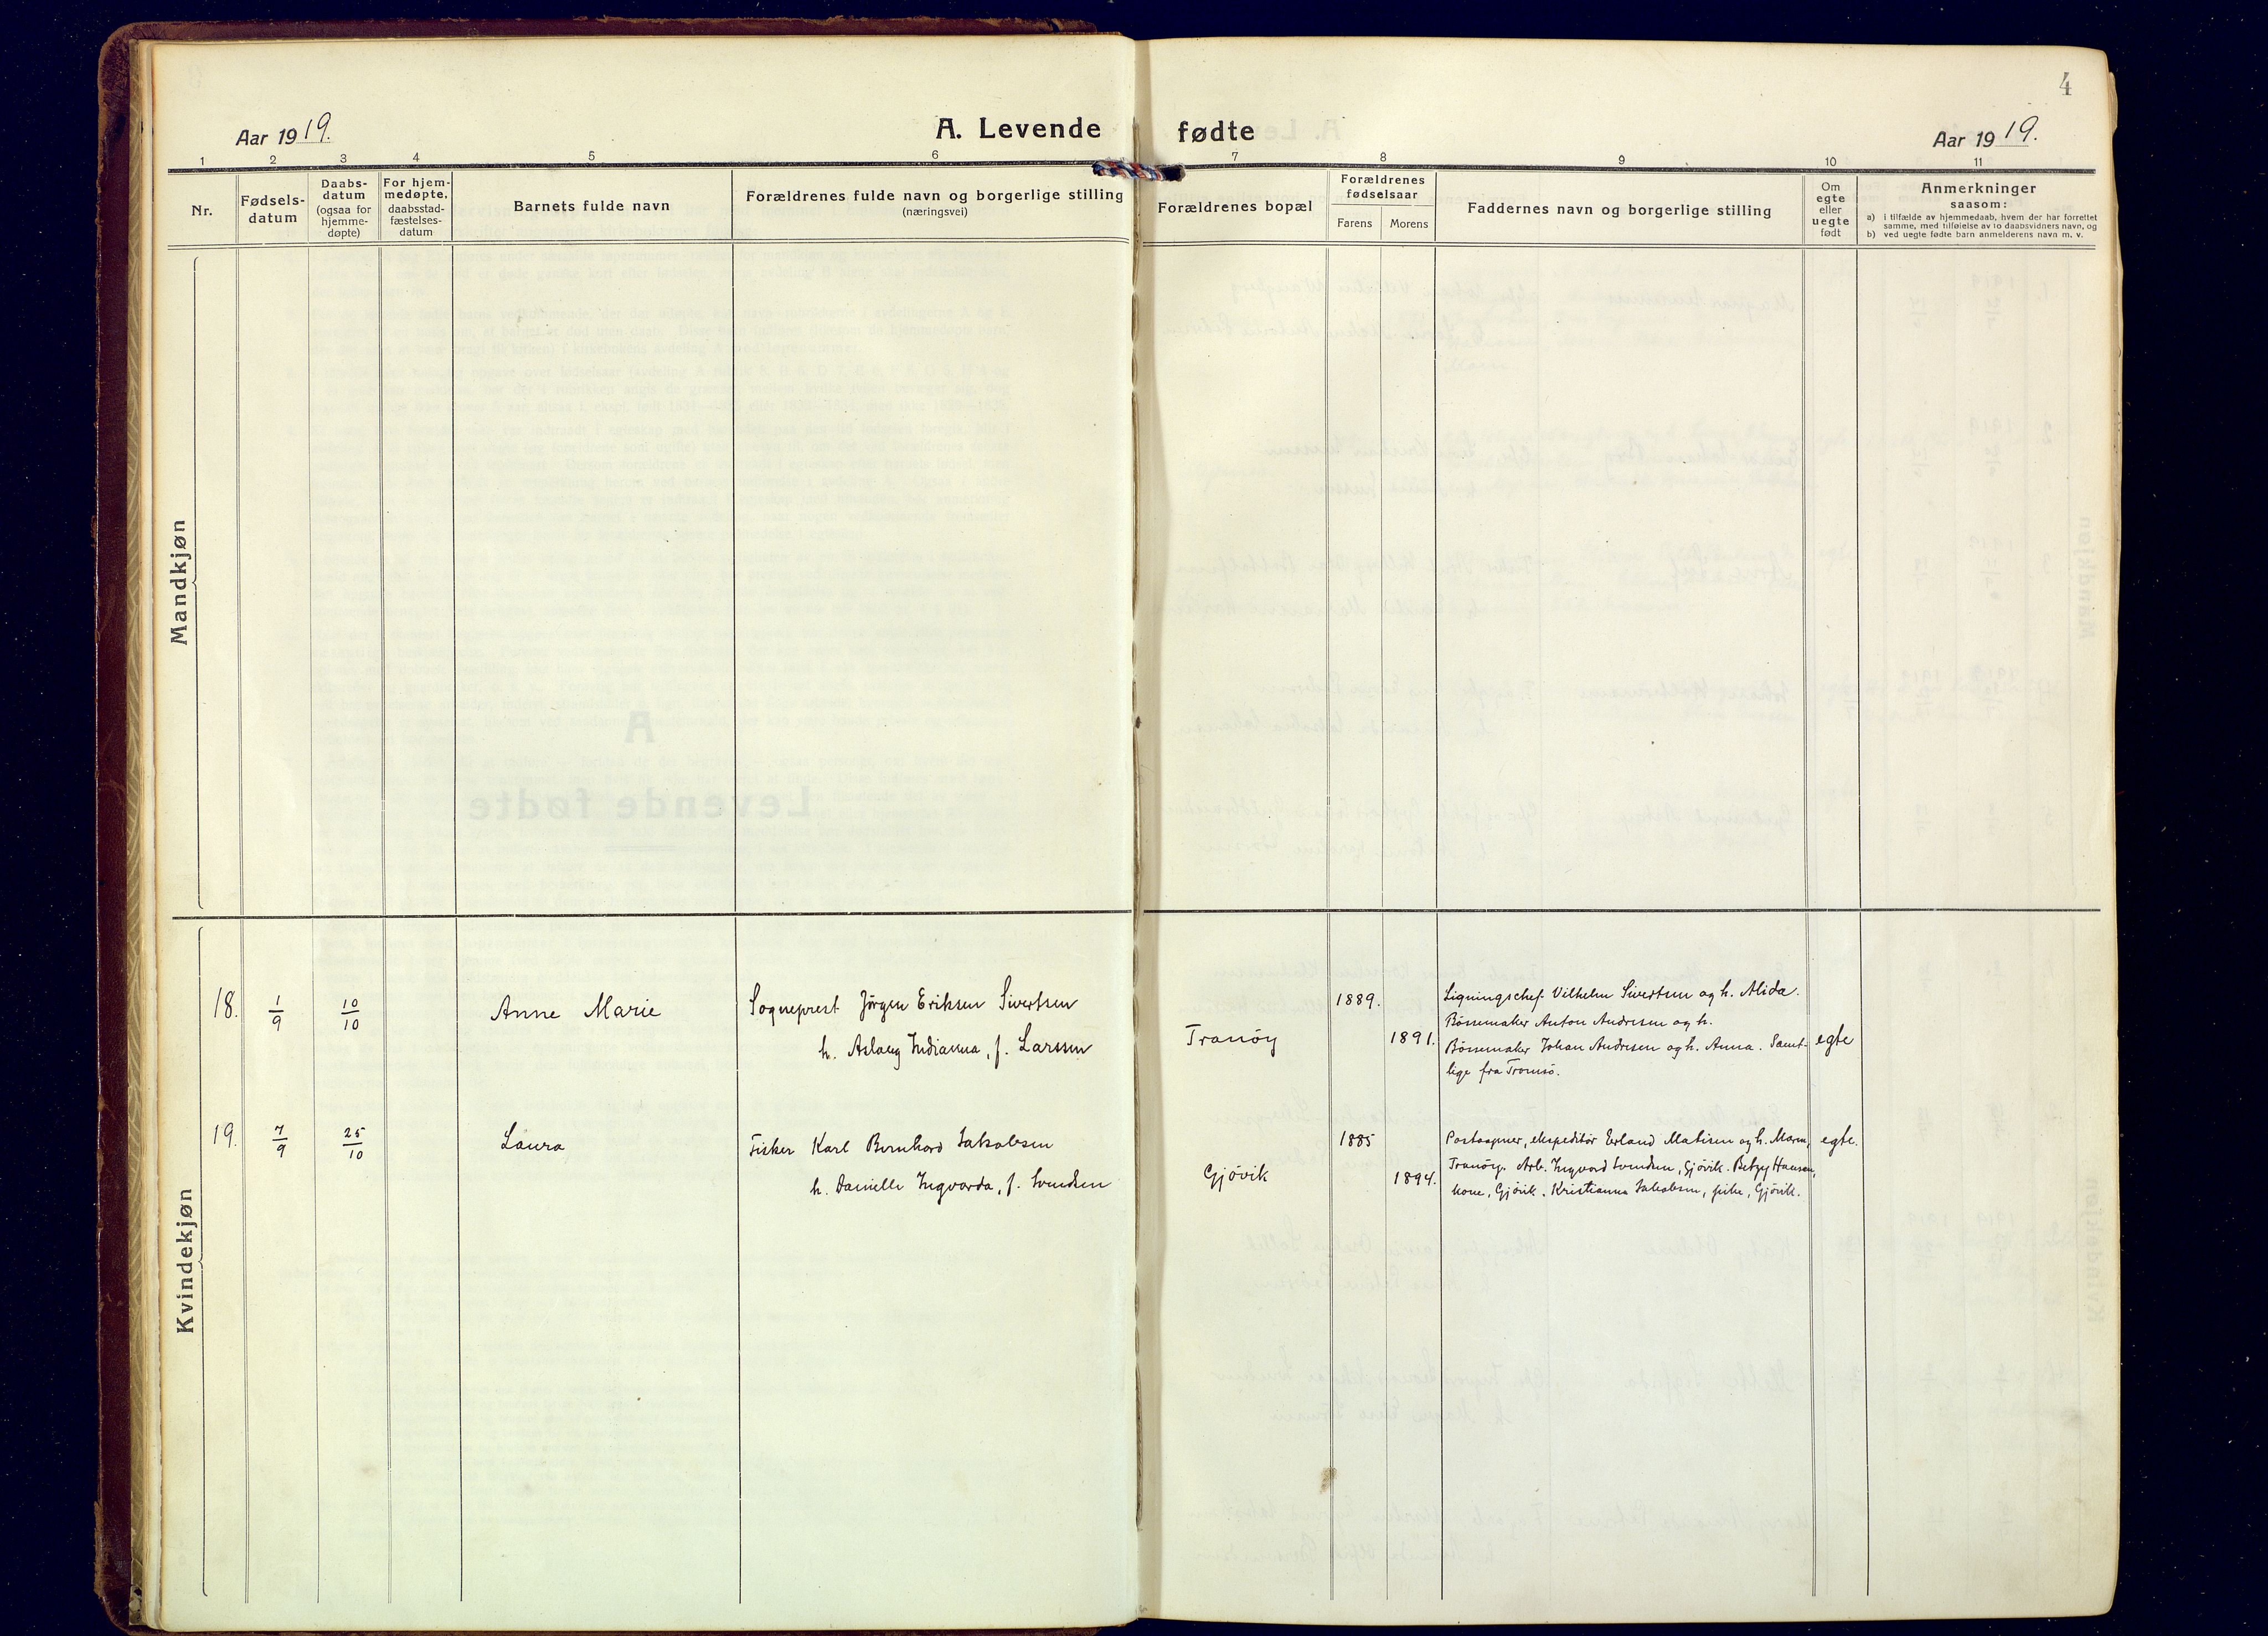 4
Aar 1919.
A. Levende fødte
Aar 1919.
1 2 3 4 5 6 7 8 9 10 11
Nr.
Fødsels-
datum
Daabs-
datum
(ogsaa for
hjemme-
døpte)
For hjem-
medøpte,
daabsstad-
fæstelses-
datum
Barnets fulde navn
Forældrenes fulde navn og borgerlige stilling
(næringsvei)
Forældrenes bopæl
Forældrenes
fødselsaar
Farens
Morens
Faddernes navn og borgerlige stilling
Om
egte
eller
uegte
født
Anmerkninger
saasom:
a) i tilfælde av hjemmedaab, hvem der har forrettet
samme, med tilføielse av to daabsvidners navn, og
b) ved uegte fødte barn anmelderens navn m. v.
Mandkjøn
A
Levende fødte
Kvindekjøn
18. 1/9 10/10 Anne Marie
Sogneprest Jörgen Eriksen Sivertsen
h. Aslaug Indianna, f. Larssen
Tranöy
1889.
1891.
Ligningschef Vilhelm Sivertsen og h. Alida.
Bössemaker Anton Andresen og h.
Bössemaker Johan Andresen og h. Anna. Samt-
lige fra Tromsö.
egte
19. 7/9 25/10 Laura
Fisker Karl Bernhard Jakobsen
h. Danielle Ingvarda, f. Svendsen
Gjövik
1885
1894.
Postaapner, ekspeditör Erland Matisen og h. Maren,
Tranöy. Arb. Ingvard Svendsen, Gjövik. Betzy Hansen,
kone, Gjövik. Kristianna Jakobsen, pike, Gjövik.
egte.